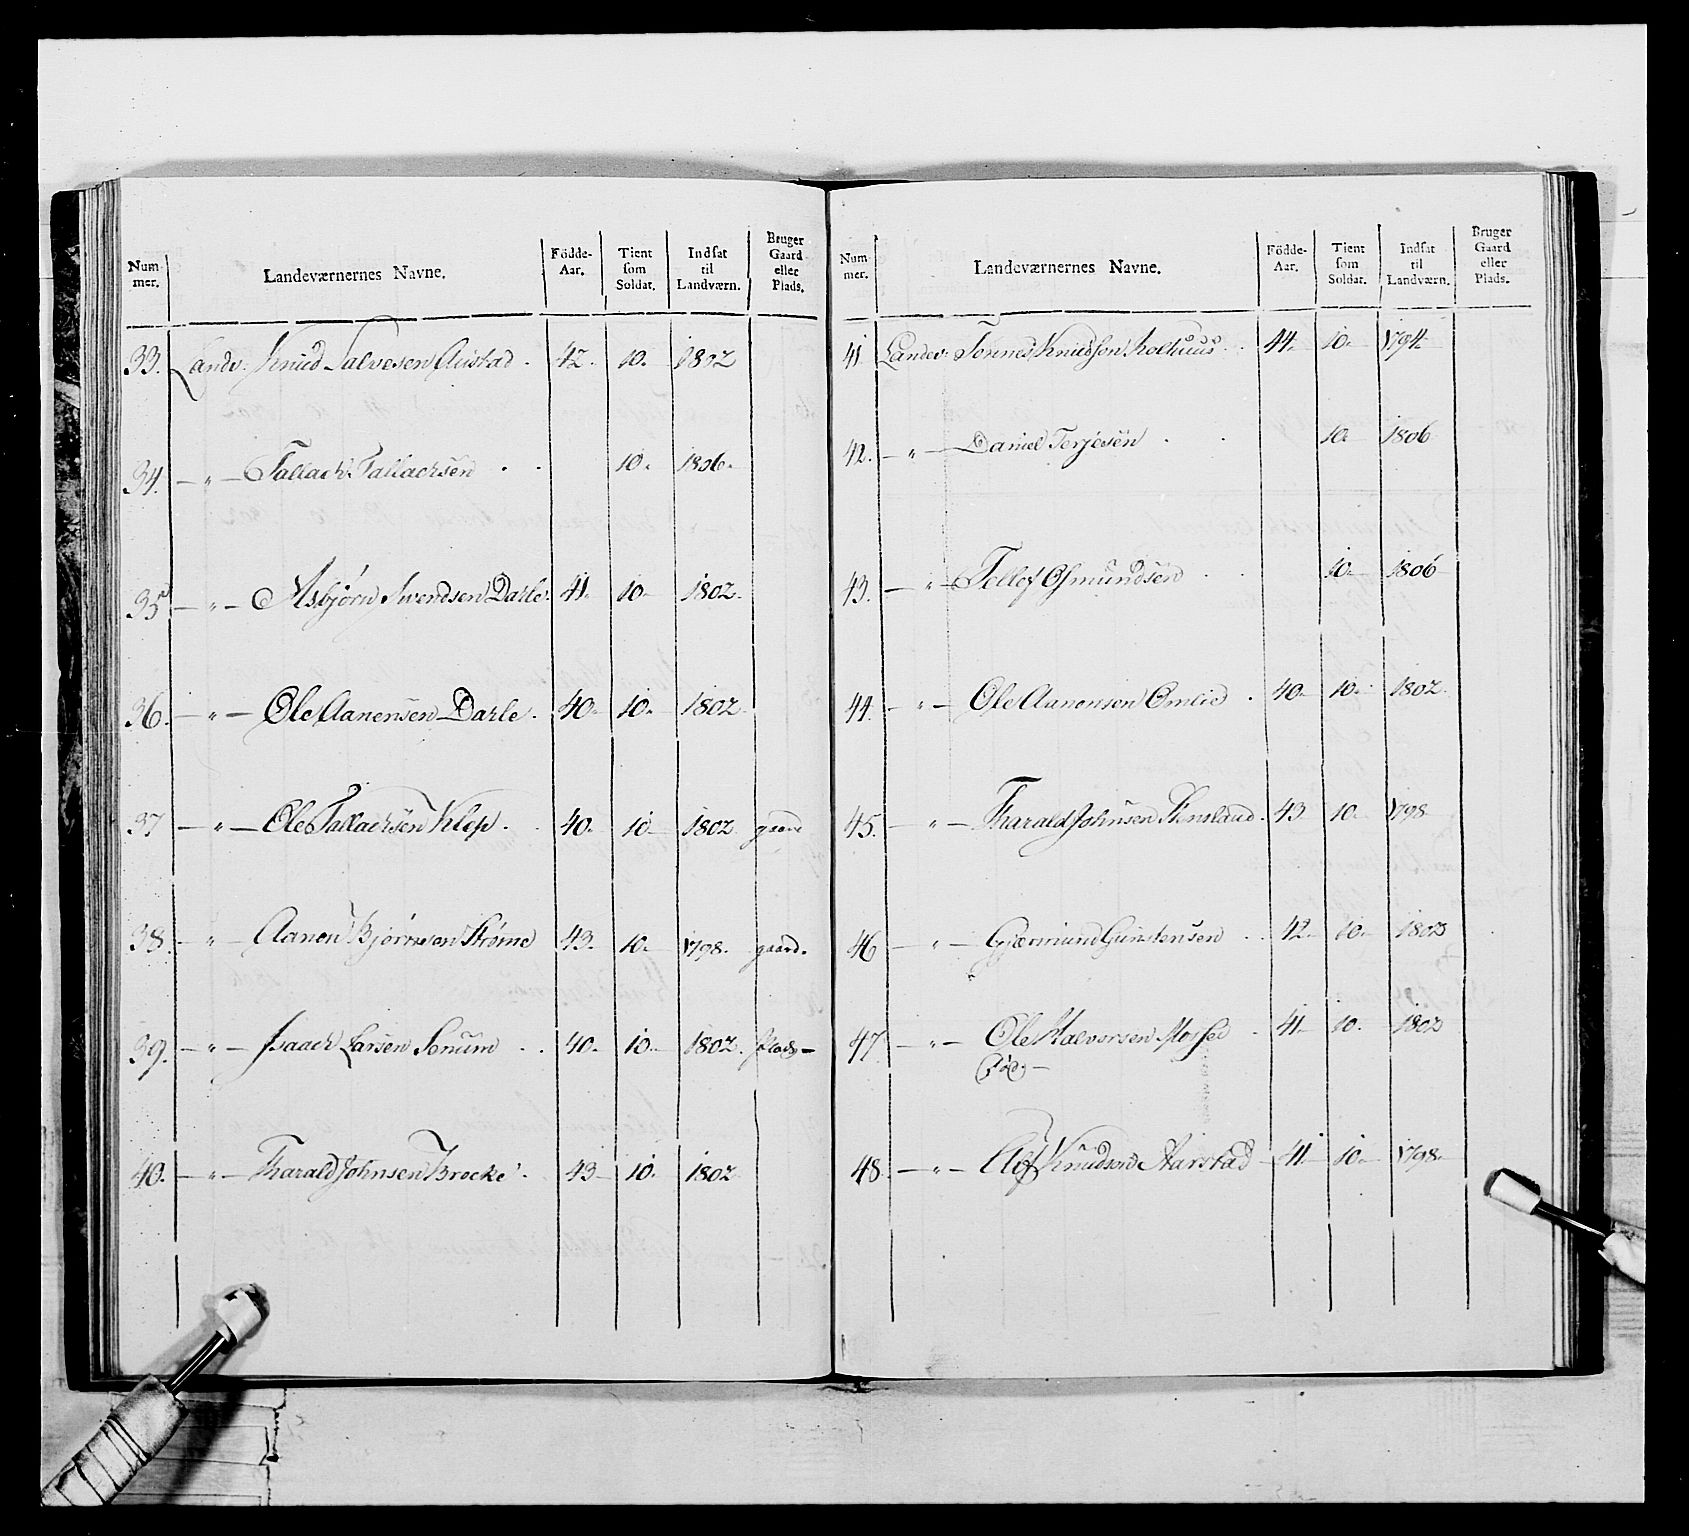 Num-
mer.
Landeværnernes Navne.
Födde-
Aar.
Tient
som
Soldat.
Indsat
til
Landværn.
Bruger
Gaard
eller
Plads.
33. Landv: Knud Salvesen Austad . 42. 10. 1802
34. — " — Tallach Tallachsen . . 10. 1806.
35 — " — Asbjørn Svendsen Darle. 41. 10. 1802.
36. — " — Ole Aanensen Darle . 40. 10. 1802.
37 — " — Ole Tallachsen Klep . . 40. 10. 1802. gaard
38. — " — Aanen Bjørnsen Strøme 43. 10. 1798. gaard.
39. — " — Isaach Larsen Senum . . 40. 10. 1802. plads —
40. — " — Tharald Johnsen Brocke . 43 10. 1802
Num
mer.
Landeværnernes Navne.
Födde-
Aar.
Tient
som
Soldat.
Indsat
til
Landværn.
Bruger
Gaard
eller
Plads.
41 Landv: Tønnes Knudsen 44. 10. 1794.
42. — " — Daniel Terjesen . . 10. 1806
43. — " — Tellef Osmundsen . . 10. 1806
44. — " — Ole Aanensen Omlid . 40. 10. 1802.
45. — " — Tharald Johnsen . 43 10. 1798.
46 — " — Gjermund Gunstensen . . 42. 10. 1802
47 — " — Ole Halvorsen . 41. 10. 1802
48. — " — Olef Knudsen Aarstad 41. 10. 1798.